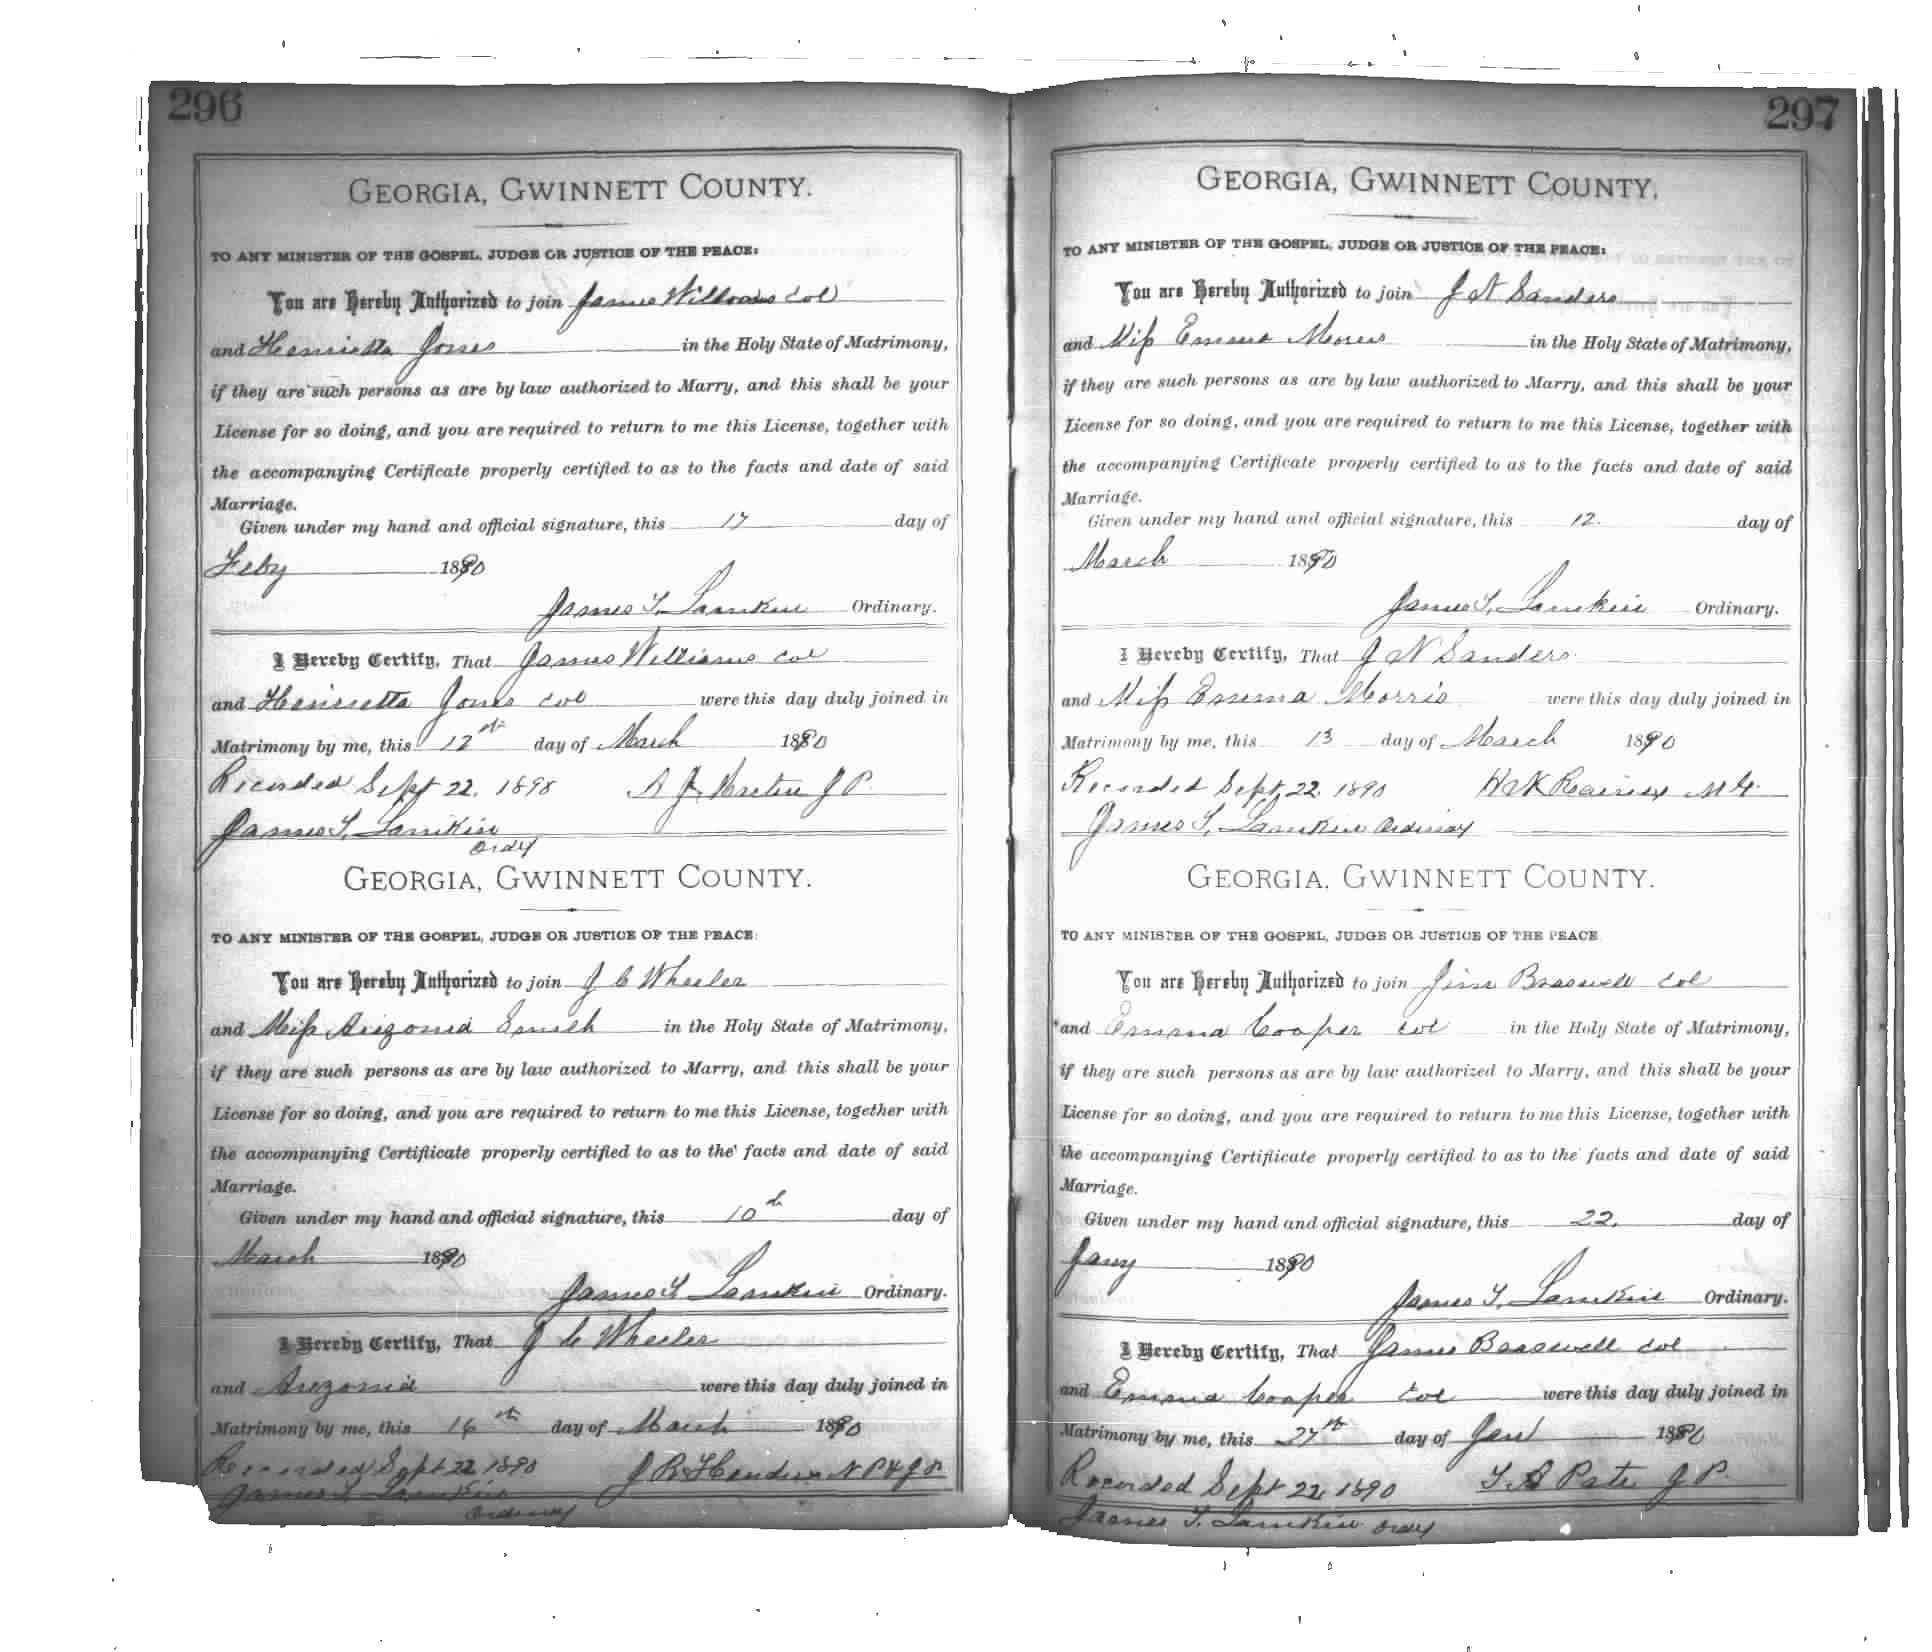 296
GEORGIA, GWINNETT COUNTY.
TO ANY MINISTER OF THE GOSPEL, JUDGE OR JUSTICE OF THE PEACE:
You are Hereby Authorized to join James Williams col
and Henrietta Jones in the Holy State of Matrimony,
if they are such persons as are by law authorized to Marry, and this shall be your
License for so doing, and you are required to return to me this License, together with
the accompanying Certificate properly certified to as to the facts and date of said
Marriage.
Given under my hand and official signature, this 17 day of
Feby 1890
James T. Lamkin Ordinary.
I Hereby Certify, That James Williams col
and Henrietta Jones col were this day duly joined in
Matrimony by me, this 12th day of March 1890
Recorded Sept 22. 1890 J P.
James T. Lamkin
Ordy
GEORGIA, GWINNETT COUNTY.
TO ANY MINISTER OF THE GOSPEL, JUDGE OR JUSTICE OF THE PEACE:
You are Hereby Authorized to join J C Wheeler
and Miss Arizonia in the Holy State of Matrimony,
if they are such persons as are by law authorized to Marry, and this shall be your
License for so doing, and you are required to return to me this License, together with
the accompanying Certifiicate properly certified to as to the facts and date of said
Marriage.
Given under my hand and official signature, this 10th day of
March 1890
James T Lamkin Ordinary.
I Hereby Certify, That J C Wheeler
and Arizonia were this day duly joined in
Matrimony by me, this 16th day of March 1890
Recorded Sept 22 1890 J R N P & J P.
James T. Lamkin
Ordinary
297
GEORGIA, GWINNETT COUNTY.
TO ANY MINISTER OF THE GOSPEL, JUDGE OR JUSTICE OF THE PEACE:
You are Hereby Authorized to join J N Sanders
and Miss Emma Morris in the Holy State of Matrimony,
if they are such persons as are by law authorized to Marry, and this shall be your
License for so doing, and you are required to return to me this License, together with
the accompanying Certificate properly certified to as to the facts and date of said
Marriage.
Given under my hand and official signature, this 12. day of
March 1890
James T. Lamkin Ordinary.
I Hereby Certify, That J N Sanders
and Miss Emma Morris were this day duly joined in
Matrimony by me, this 13 day of March 1890
Recorded Sept. 22. 1890 M G.
James T. Lamkin Ordinary
GEORGIA, GWINNETT COUNTY.
TO ANY MINISTER OF THE GOSPEL, JUDGE OR JUSTICE OF THE PEACE
You are Hereby Authorized to join Jim Braswell col
and Emma Cooper col in the Holy State of Matrimony,
if they are such persons as are by law authorized to Marry, and this shall be your
License for so doing, and you are required to return to me this License, together with
the accompanying Certifiicate properly certified to as to the facts and date of said
Marriage.
Given under my hand and official signature, this 22. day of
Jany 1890
James T. Lamkin Ordinary.
I Hereby Certify, That James Braswell col
and Emma Cooper col were this day duly joined in
Matrimony by me, this 27th day of Jan 1890
Recorded Sept 22, 1890 Pate J P.
James T. Lamkin Ordy